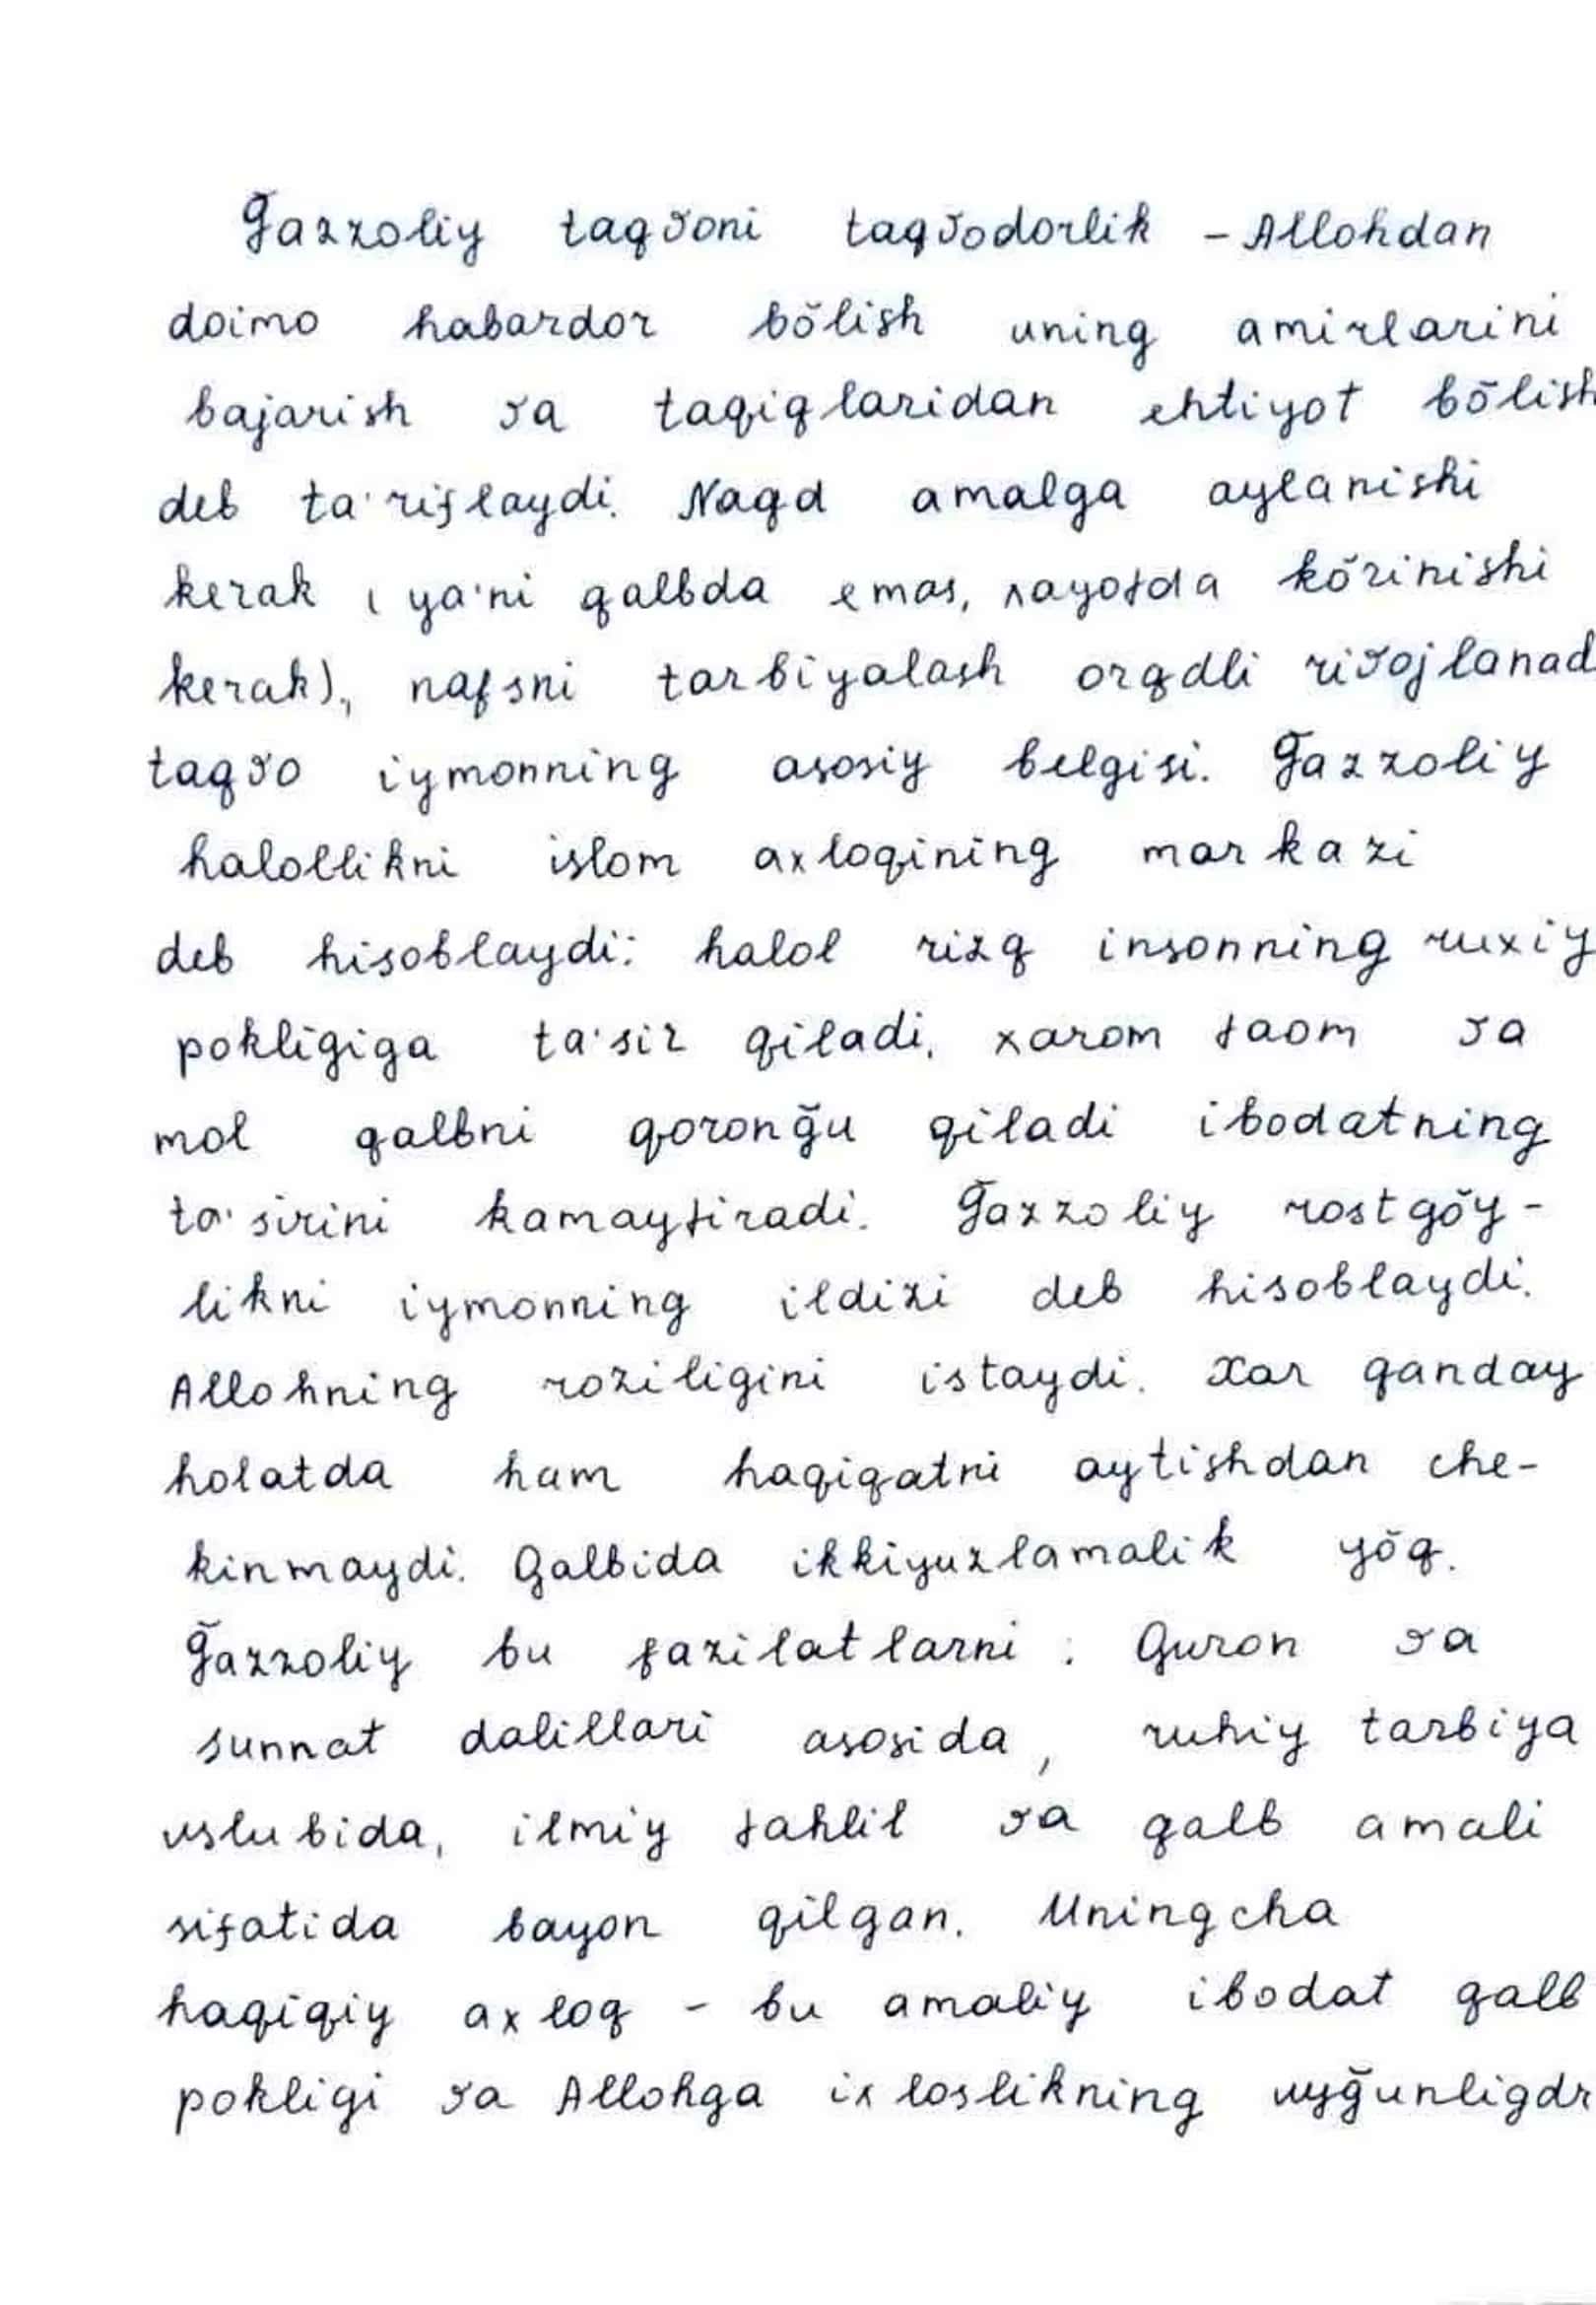 Ğazzoliy taqvoni taqvodorlik - Allohdan
doimo habardor bŏlish uning amirlarini
bajarish va taqiqlaridan ehtiyot bŏlish
deb ta'riflaydi. Naqd amalga aylanishi
kerak (ya'ni qalbda emas, xayotda kŏrinishi
kerak)., nafsni tarbiyalash orqali rivojlanad
taqvo iymonning asosiy belgisi. Ğazzoliy
halollikni islom axloqining markazi
deb hisoblaydi: halol rizq insonning ruxiy
pokligiga ta'sir qiladi, xarom taom va
mol qalbni qoronğu qiladi ibodatning
ta'sirini kamaytiradi. Ğazzoliy rostgŏy-
likni iymonning ildizi deb hisoblaydi.
Allohning roziligini istaydi. Xar qanday
holatda ham haqiqatni aytishdan che-
kinmaydi. Qalbida ikkiyuzlamalik yŏq.
Ğazzoliy bu fazilatlarni : Quron va
sunnat dalillari asosida, ruhiy tarbiya
uslubida, ilmiy tahlil va qalb amali
sifatida bayon qilgan. Uningcha
haqiqiy axloq - bu amaliy ibodat qalb
pokligi va Allohga ixloslikning uyğunligdr